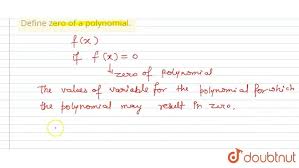 Define zero of a polynomial.
f(x)
if f(x) = 0
↳ zero of polynomial
The values of variable for the polynomial for which
the polynomial may result in zero.
doubtnut